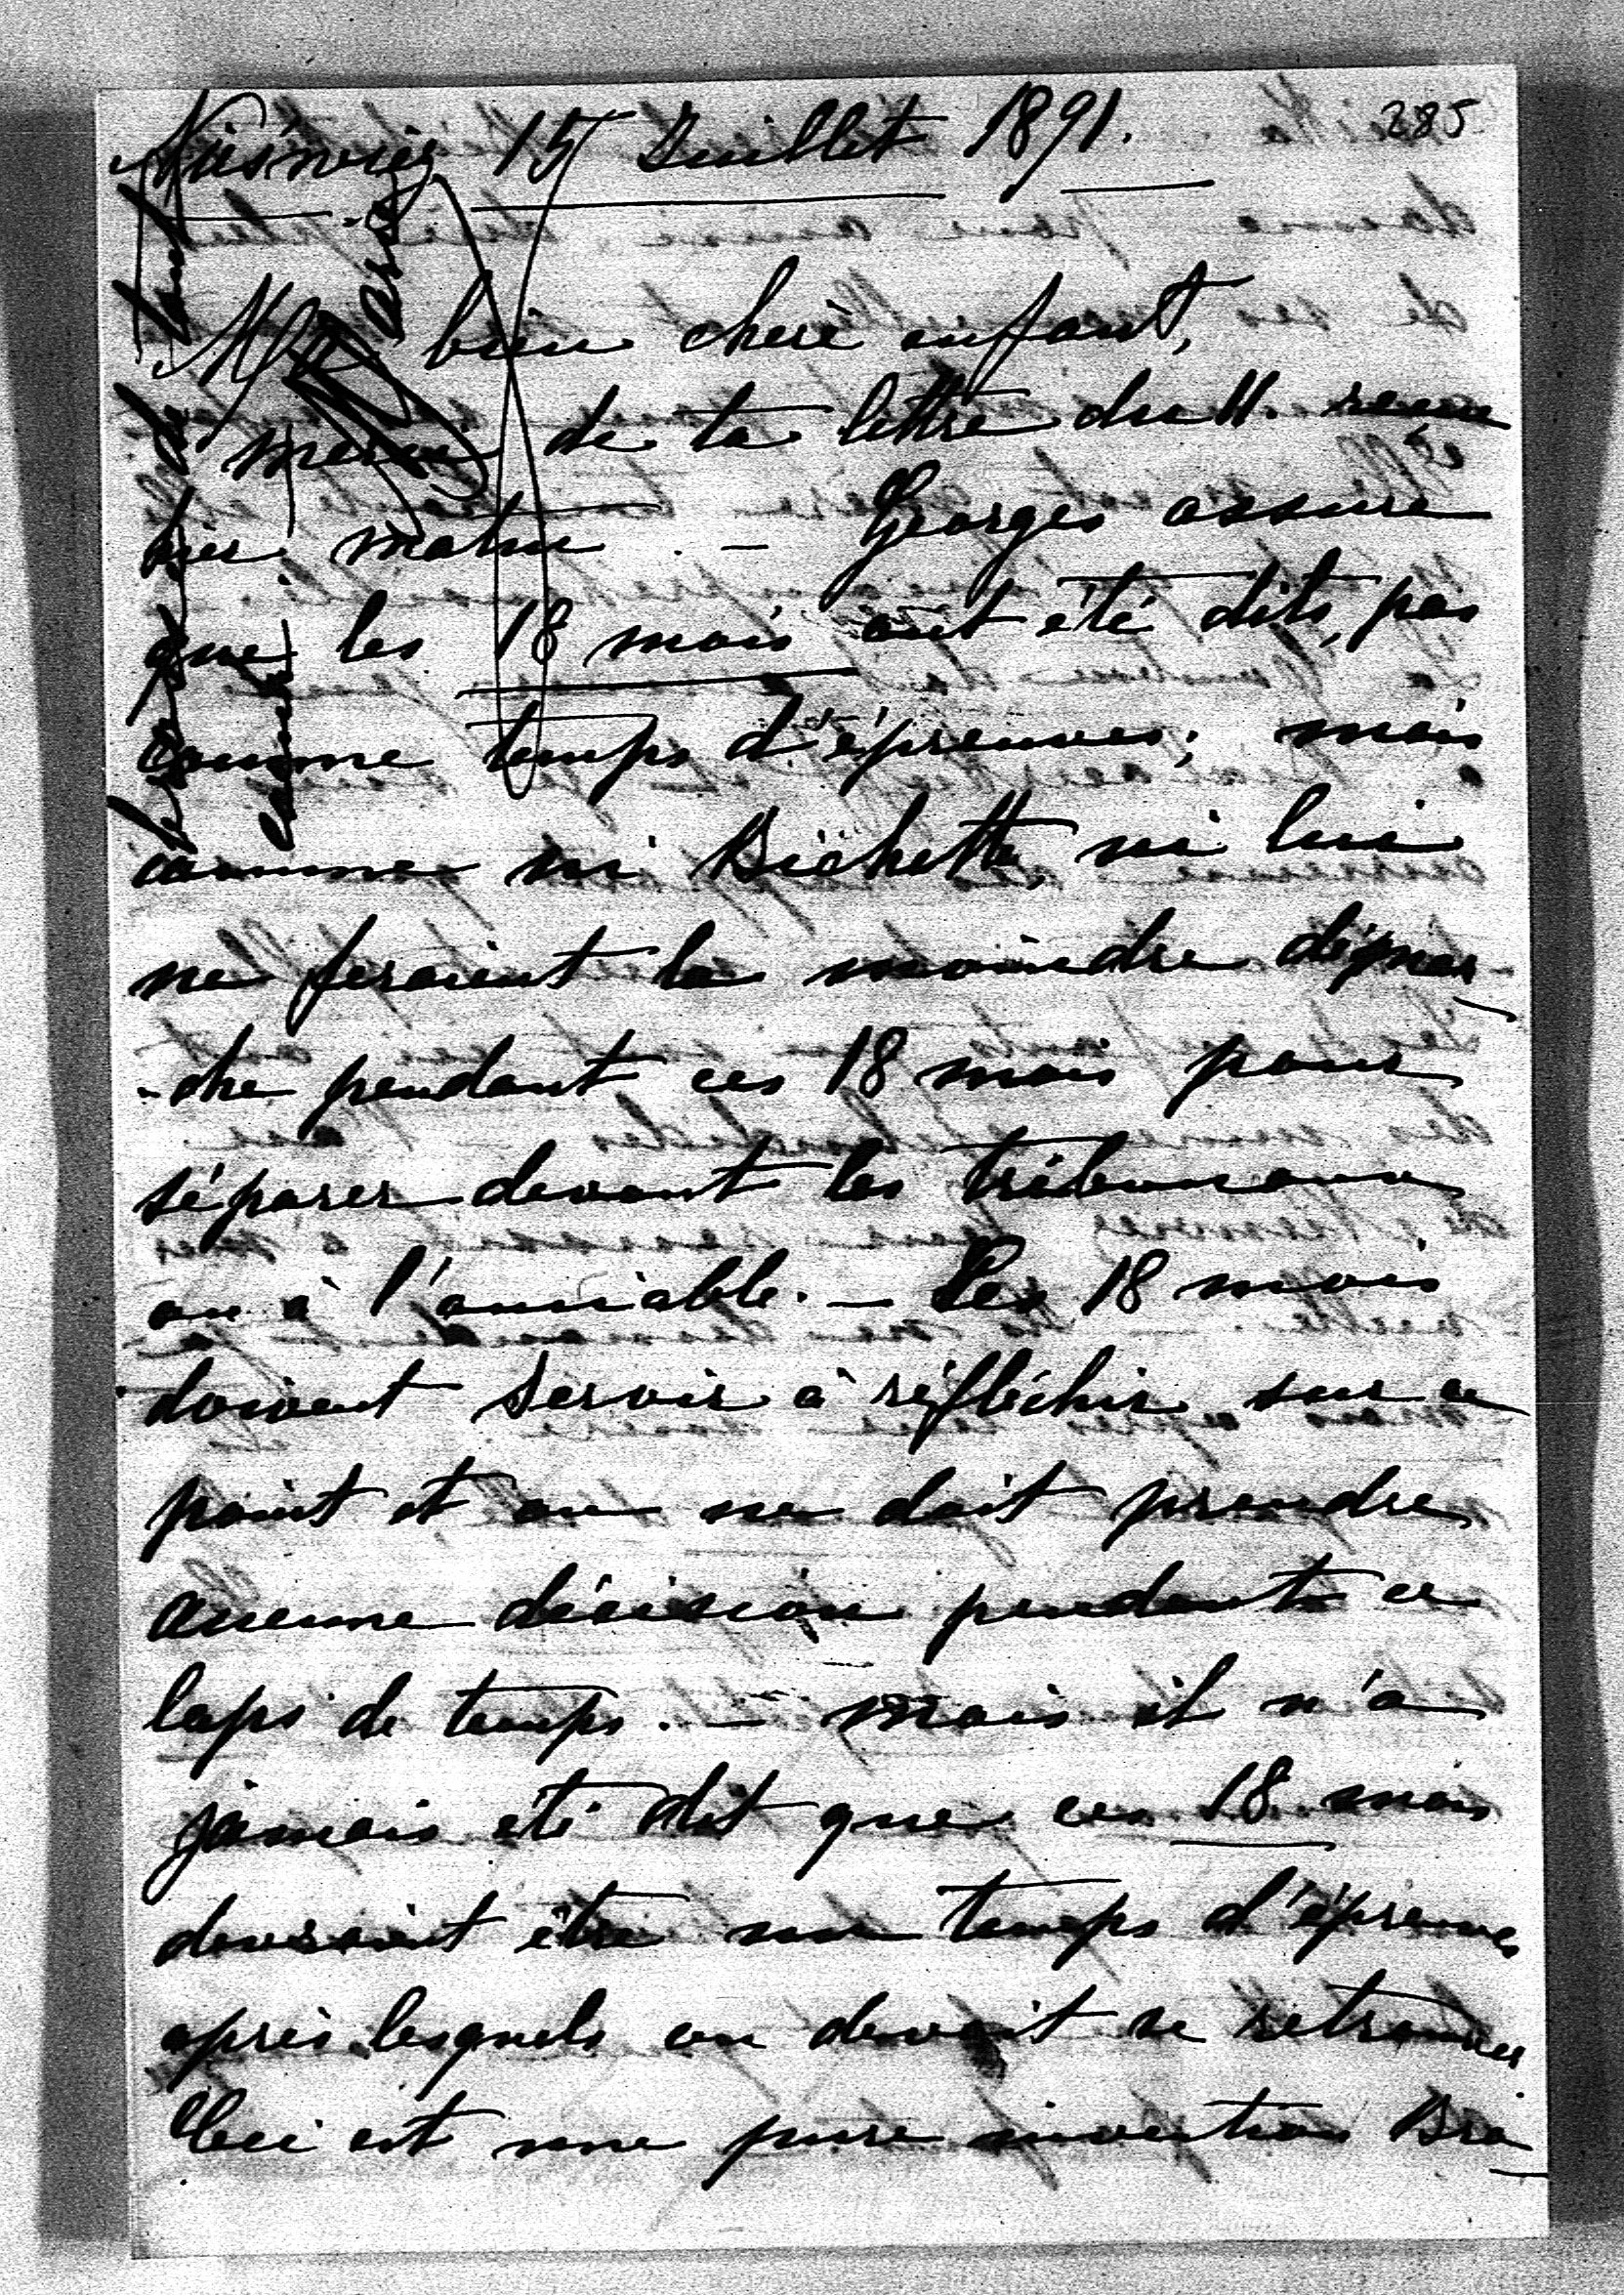 285
Nieśwież 15 Juillet 1891.
Mon bien cheré enfant,
merci de ta lettre du 11. reçue
hier matin. — Georges assure
que les 18 mois ont été dits, pas
comme temps d'épreuves; mais
comme ni Bichette, ni lui
ne feraient la moindre démar-
-che pendant ces 18 mois pour
séparer devant les tribunaux
ou à l'amiable. — Les 18 mois
doivent servir à réfléchir sur ce
point et on ne doit prendre
aucune décision pendant ce
laps de temps. — mais il n'a
jamais été dit que ces 18 mois
devraient être un temps d'épreuves
après lesquels on devait se retrouver
Ceci est une pure invention Bra-